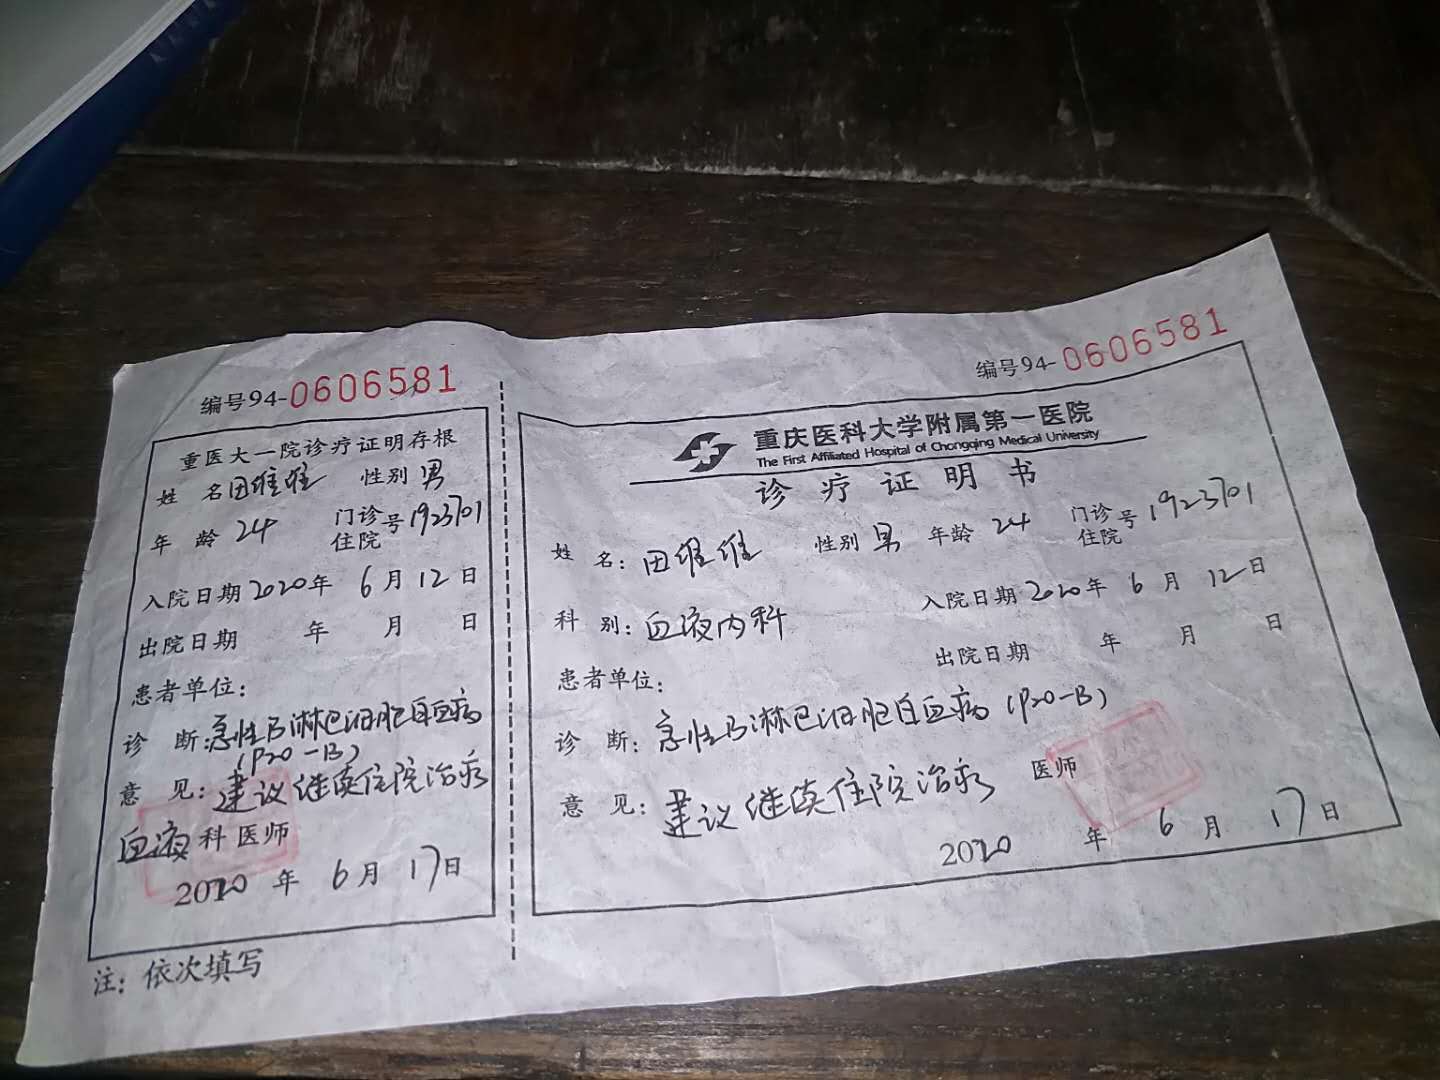 编号94-0606581
重医大一院诊疗证明存根
姓 名 田维维 性别 男
年 龄 24 门诊住院号 1923701
入院日期 2020年 6月 12日
出院日期 年 月 日
患者单位:
诊 断: 急性B淋巴细胞白血病
(P20-B)
意 见: 建议继续住院治疗
血液科医师
2020 年 6月 17日
注: 依次填写
编号94-0606581
重庆医科大学附属第一医院
The First Affiliated Hospital of Chongqing Medical University
诊疗证明书
姓 名: 田维维 性别 男 年龄 24 门诊住院号 1923701
科 别: 血液内科 入院日期 2020年 6月 12日
患者单位: 出院日期 年 月 日
诊 断: 急性B淋巴细胞白血病 (P20-B)
意 见: 建议继续住院治疗 医师
2020 年 6月 17日